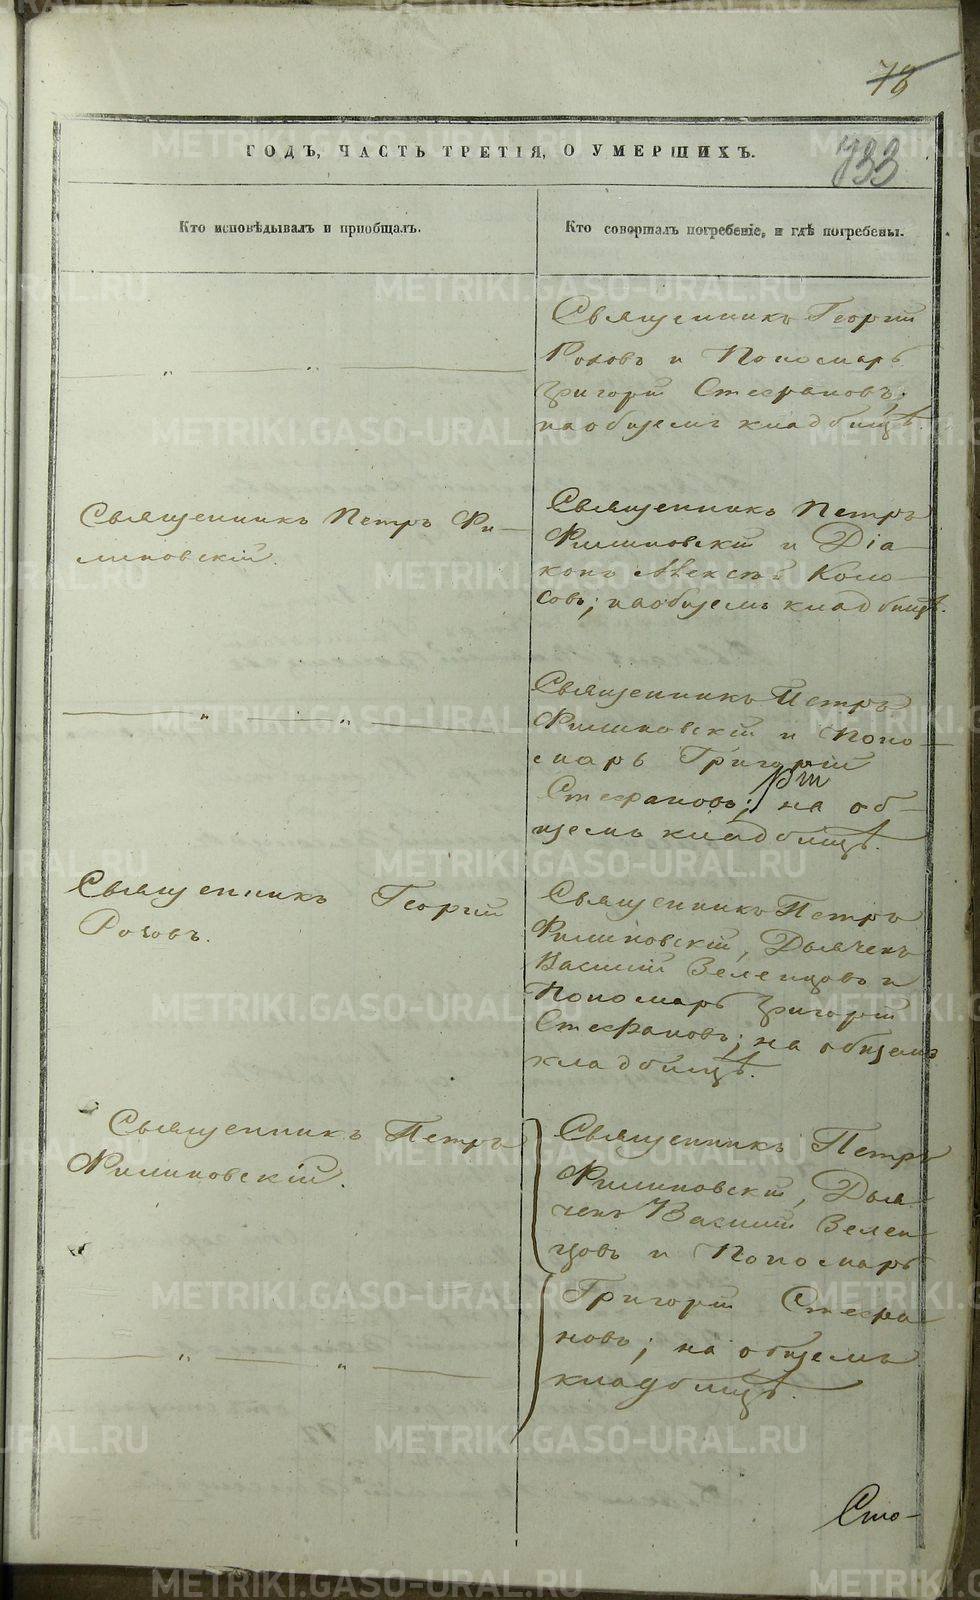 78
733
ГОДЪ, ЧАСТЬ ТРЕТІЯ, О УМЕРШИХЪ.
Кто исповѣдывалъ и пріобщалъ.
Кто совершалъ погребеніе, и гдѣ погребены.
Священникъ Георгій
Розовъ и Пономарь
Григорій Стефановъ;
на общемъ кладбищѣ.
Священникъ Петръ Фи-
линовскій.
Священникъ Петръ
Филиновскій и Діа-
конъ Алексѣй Коло-
совъ; на общемъ кладбищѣ.
Священникъ Петръ
Филиновскій и Поно-
марь Григорій
Стефановъ; на об-
щемъ кладбищѣ.
Священникъ Георгій
Розовъ.
Священникъ Петръ
Филиновскій, Дьячекъ
Василій Зеленцовъ и
Пономарь Григорій
Стефановъ; на общемъ
кладбищѣ.
Священникъ Петръ
Филиновскій.
Священникъ Петръ
Филиновскій, Дья-
чекъ Василій Зелен
цовъ и Пономарь
Григорій Стефа-
новъ; на общемъ
кладбищѣ.
Сто-
METRIKI.GASO-URAL.RU